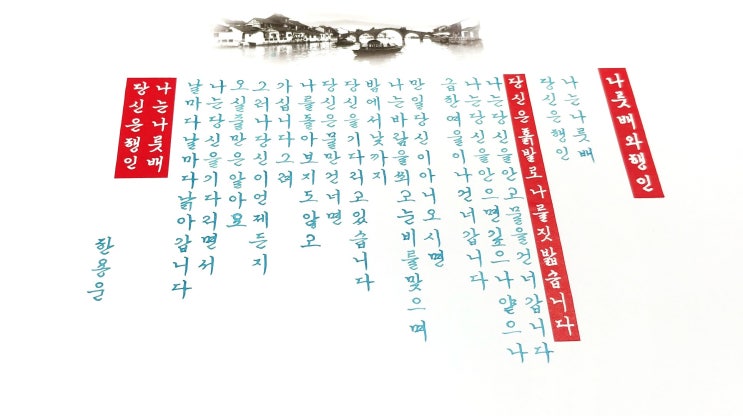 나룻배와행인
나는나룻배
당신은행인
당신은흙발로나를짓밟습니다
나는당신을안고물을건너갑니다
나는당신을안으면깊으나얕으나
급한여울이나건너갑니다
만일당신이아니오시면
나는바람을쐬고눈비를맞으며
밤에서낮까지
당신을기다리고있습니다
당신은물만건너면
나를돌아보지도않고
가십니다그려
그러나당신이언제든지
오실줄만은알아요
나는당신을기다리면서
날마다날마다낡아갑니다
나는나룻배
당신은행인
한용운